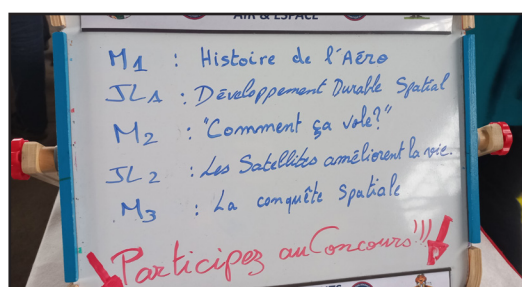 AIR & ESPACE
M1 : Histoire de l'Aéro
JL1 : Développement Durable Spatial
M2 : "Comment ça vole?"
JL2 : Les Satellites améliorent la vie.
M3 : La conquête Spatiale
Participez au Concours!!!